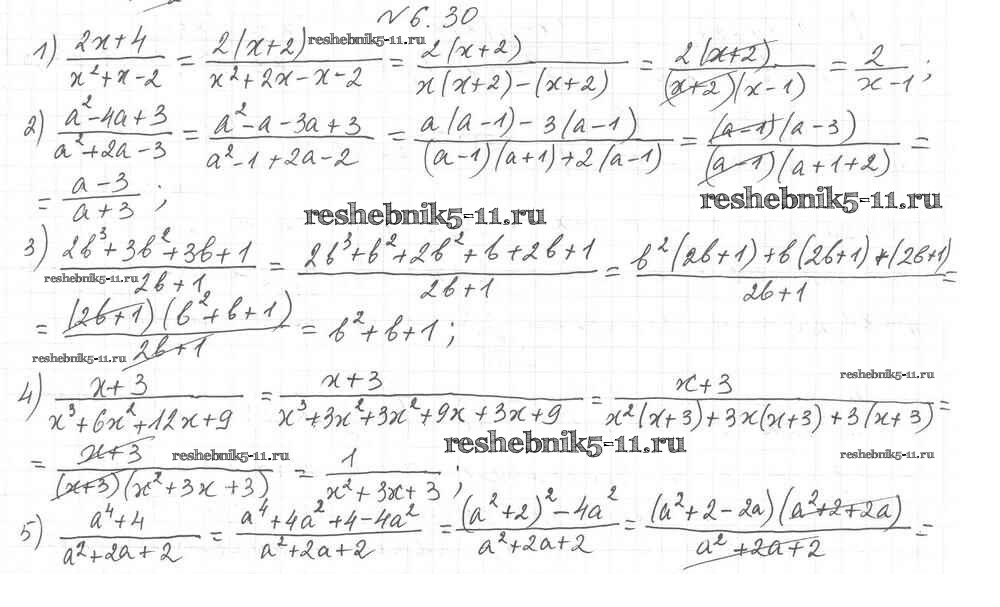 №6.30
1) (2x+4)/(x²+x-2) = 2(x+2)/(x²+2x-x-2) = 2(x+2)/(x(x+2)-(x+2)) = 2(x+2)/((x+2)(x-1)) = 2/(x-1);
reshebnik5-11.ru
2) (a²-4a+3)/(a²+2a-3) = (a²-a-3a+3)/(a²-1+2a-2) = (a(a-1)-3(a-1))/((a-1)(a+1)+2(a-1)) = ((a-1)(a-3))/((a-1)(a+1+2)) =
= (a-3)/(a+3);
reshebnik5-11.ru
reshebnik5-11.ru
3) (2b³+3b²+3b+1)/(2b+1) = (2b³+b²+2b²+b+2b+1)/(2b+1) = (b²(2b+1)+b(2b+1)+(2b+1))/(2b+1) =
reshebnik5-11.ru
= ((2b+1)(b²+b+1))/(2b+1) = b²+b+1;
reshebnik5-11.ru
reshebnik5-11.ru
4) (x+3)/(x³+6x²+12x+9) = (x+3)/(x³+3x²+3x²+9x+3x+9) = (x+3)/(x²(x+3)+3x(x+3)+3(x+3)) =
reshebnik5-11.ru
= (x+3)/((x+3)(x²+3x+3)) = 1/(x²+3x+3);
reshebnik5-11.ru
reshebnik5-11.ru
5) (a⁴+4)/(a²+2a+2) = (a⁴+4a²+4-4a²)/(a²+2a+2) = ((a²+2)²-4a²)/(a²+2a+2) = ((a²+2-2a)(a²+2+2a))/(a²+2a+2) =